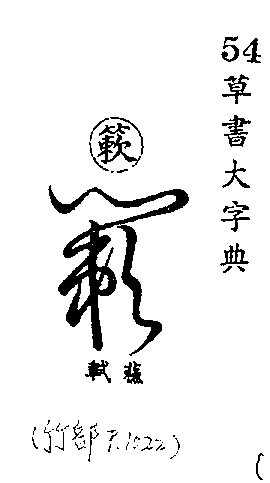 54
草書大字典
簌
簌
蘇軾
(竹部 P.1022)
(